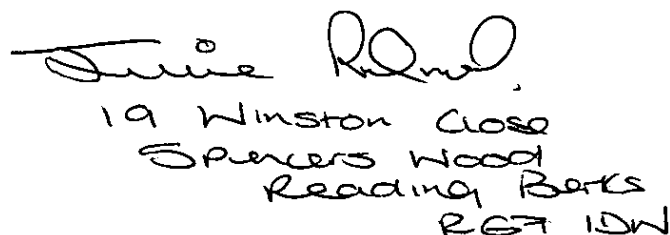 19 Winston Close
Spencers Wood
Reading Berks
RG7 1DW